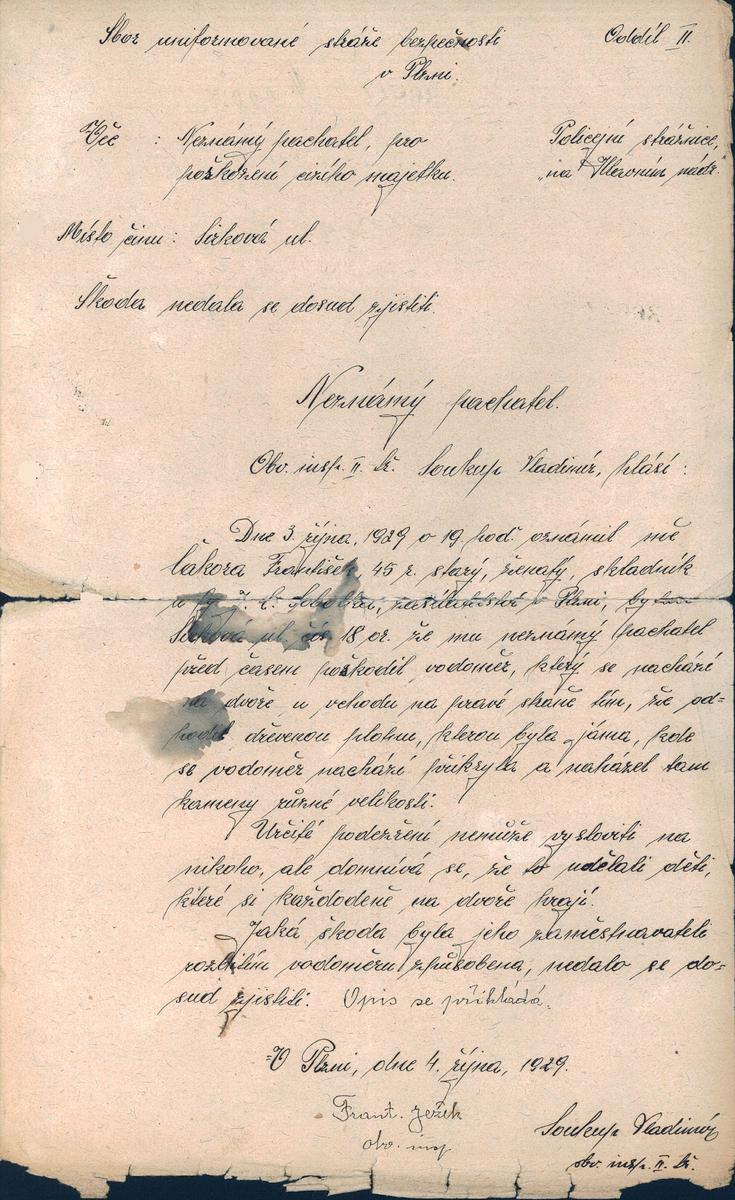 Sbor uniformované stráže bezpečnosti Oddíl II.
v Plzni.
Věc : Neznámý pachatel, pro Policejní strážnice,
poškození cizího majetku. „na Hlavním nádr."
Místo činu: Sirková ul.
Škoda nedala se dosud zjistiti.
Neznámý pachatel.
Obv. insp. II. tř. Soukup Vladimír, hlásí:
Dne 3. října, 1929 o 19 hod. oznámil mě
František 45 r. starý, ženatý, skladník
u fy J. E. Sobotka, zasilatelství v Plzni,
Sirková ul. čís. 18 or. že mu neznámý pachatel
před časem poškodil vodoměr, který se nachází
na dvoře u vchodu na pravé straně tím, že od-
hodil dřevěnou plotnu, kterou byla jáma, kde
se vodoměr nachází přikryta a naházel tam
kameny různé velikosti.
Určité podezření nemůže vysloviti na
nikoho, ale domnívá se, že to udělali děti,
které si každodeně na dvoře hrají.
Jaká škoda byla jeho zaměstnavateli
rozbitím vodoměru způsobena, nedalo se do-
sud zjistiti. Opis se přikládá.
V Plzni, dne 4. října, 1929.
Frant. Ježek
obv. insp Soukup Vladimír
obv. insp. II. tř.